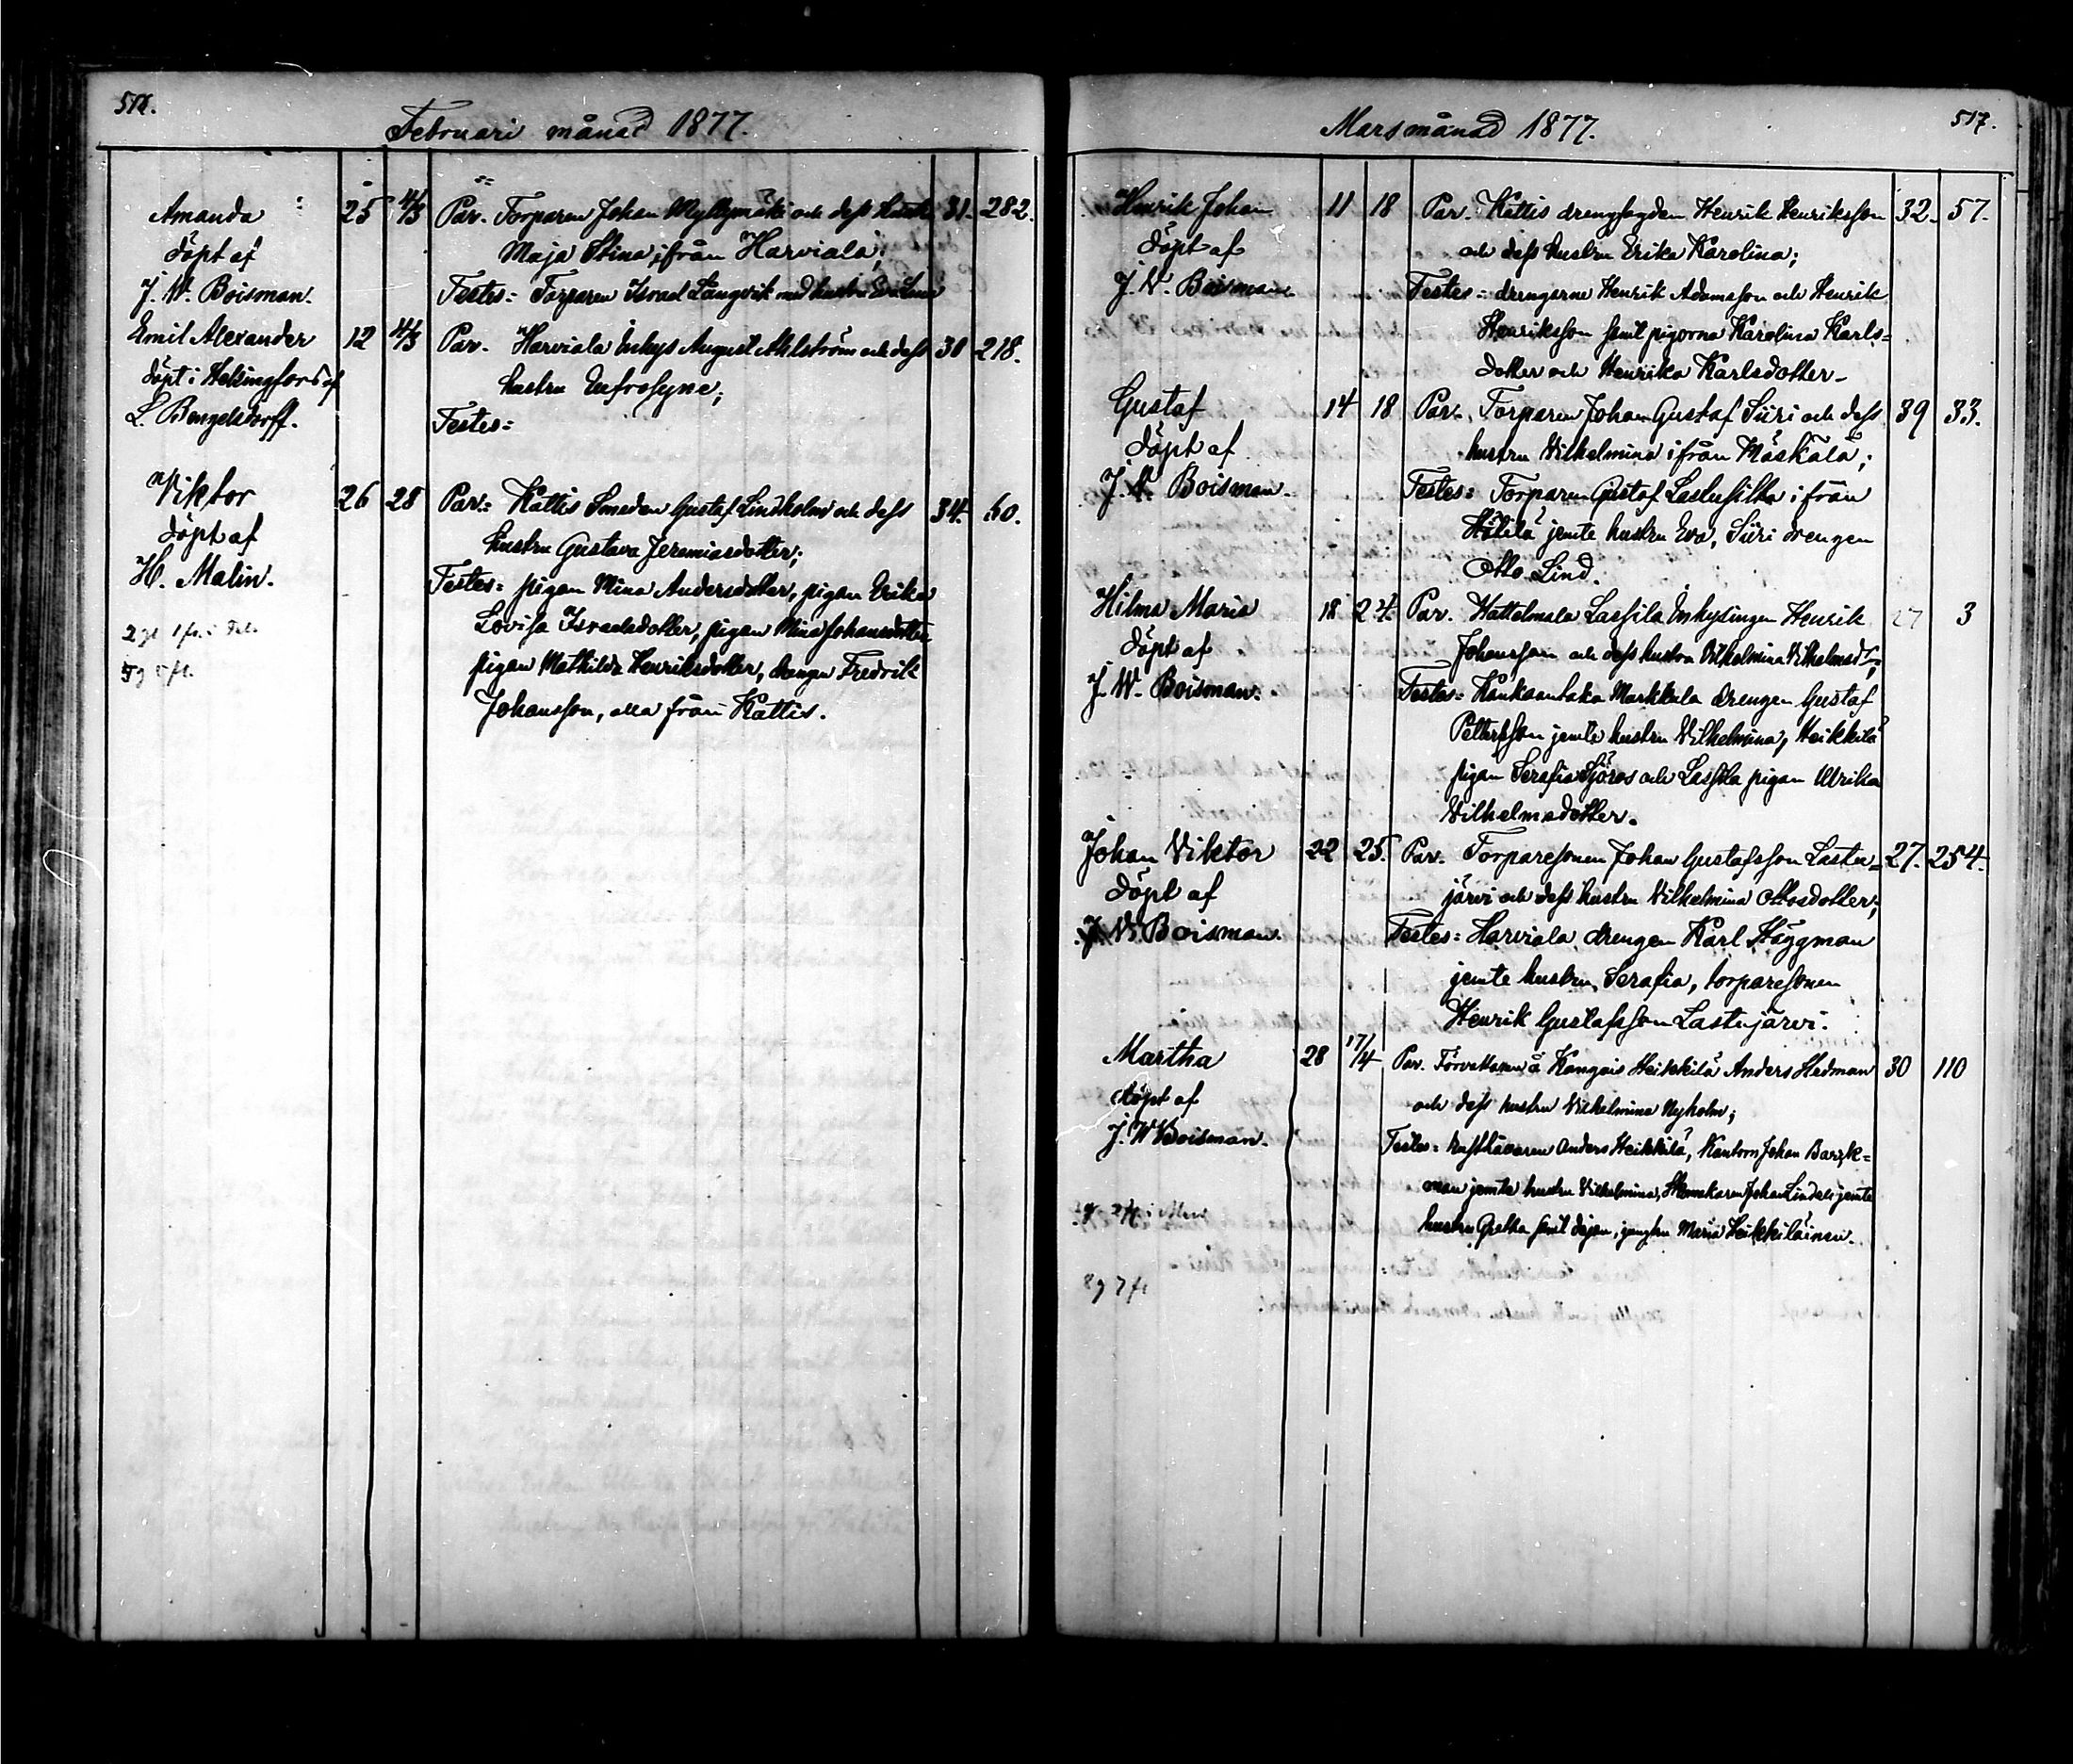 516.
Februari månad 1877.
Amanda 25 4/3 Par. Torparen Johan Myllymäki och dess hustr. 31. 282.
döpt af Maja Stina, ifrån Harviala;
J. W. Boisman. Testes: Torparen Israel Långvik med hustru Eva Lena
Emil Alexander 12 4/3 Par. Harviala Inhys August Ahlström och dess 30 218.
döpt i Helsingfors af hustru Eufrosyne;
L. Bengelsdorff. Testes:
Viktor 26 28 Par: Kattis Smeden Gustaf Lindholm och dess 34. 60.
döpt af hustru Gustava Jeremiasdotter;
H. Malin. Testes: pigan Mina Andersdotter, pigan Erika
Lovisa Israelsdotter, pigan Mina Johansdotter
pigan Mathilda Henriksdotter, drengen Fredrik
Johansson, alla från Kattis.
517.
Marsmånad 1877.
Henrik Johan 11 18 Par. Kattis drengfogden Henrik Henriksson 32. 57.
döpt af och dess hustru Erika Karolina;
J. W. Boisman Testes: drengarne Henrik Adamsson och Henrik
Henriksson samt pigorna Karolina Karls=
dotter och Henrika Karlsdotter.
Gustaf 14 18 Par. Torparen Johan Gustaf Siiri och dess 39 33.
döpt af hustru Vilhelmina ifrån Mäskälä;
J. W. Boisman. Testes: Torparen Gustaf ifrån
Hätilä jemte hustru Eva, Siiri drengen
Otto Lind.
Hilma Maria 18 24. Par. Hattelmala Lassila Inhysingen Henrik 27 3
döpt af Johansson och dess hustru Vilhelmina Vilhelmsdr;
J. W. Boisman. Testes: Kankaantaka Markkula drengen Gustaf
Pettersson jemte hustru Vilhelmina, Heikkilä
pigan Serafia Sjöros och Lassila pigan Ulrika
Vilhelmsdotter.
Johan Viktor 22 25. Par. Torparesonen Johan Gustafsson Lastu= 27. 254.
döpt af järvi och dess hustru Vilhelmina Ottosdotter;
J. W. Boisman. Testes: Harviala drengen Karl Häggman
jemte hustru Serafia, torparesonen
Henrik Gustafsson Lastujärvi.
Martha 28 17/4 Par. Förvaltaren å Kangais Heikkilä Anders Hedman 30 110
döpt af och dess hustru Vilhelmina Nyholm;
J. W Boisman. Testes: Rusthållaren Anders Heikkilä, Kantorn Johan =
man jemte hustru Vilhelmina, Johan Lindell jemte
hustru Gretha samt dejan, jungfru Maria Heikkiläinen.
8 g 7 fl